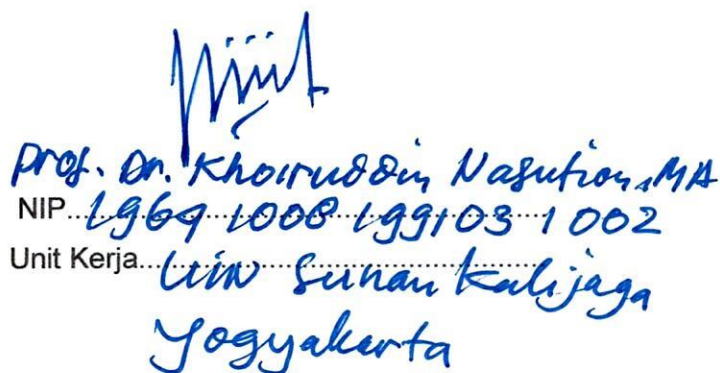 Prof. Dr. Khoiruddin Nasution, MA
NIP. 19641008 199103 1 002
Unit Kerja. UIN Sunan Kalijaga
Yogyakarta